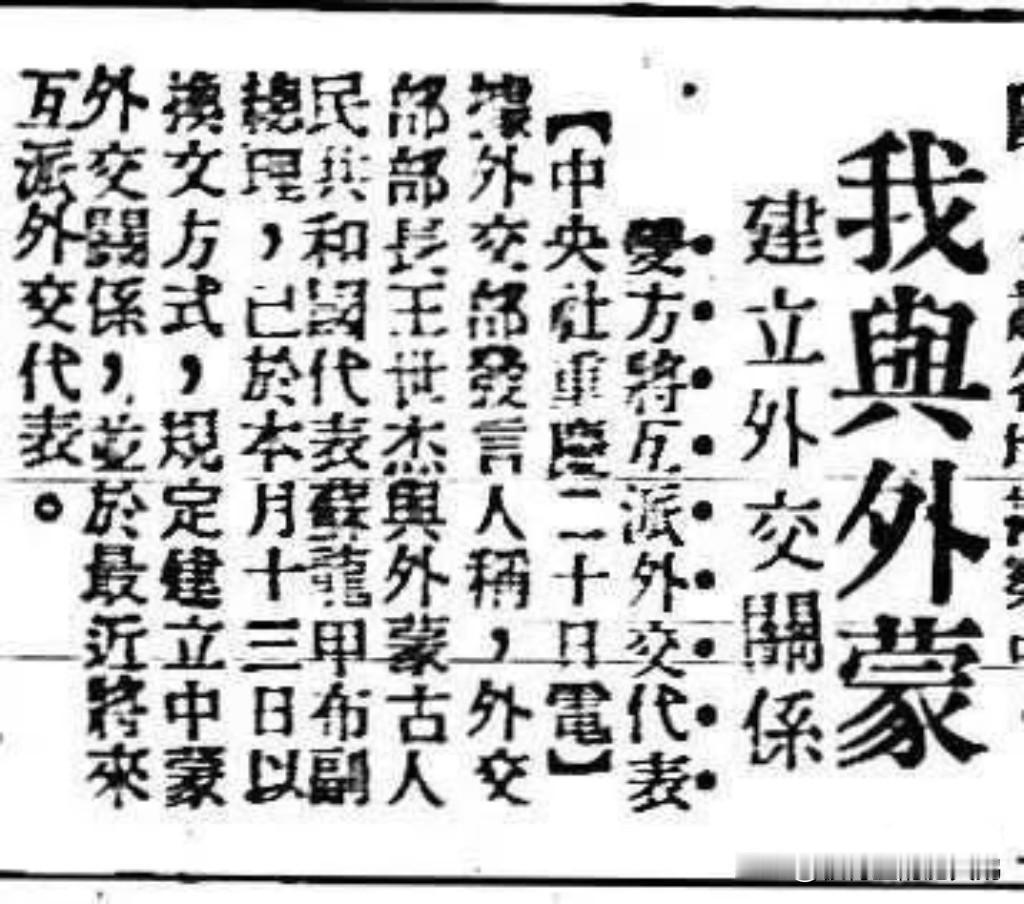 我與外蒙
建立外交關係
雙方將互派外交代表
【中央社重慶二十日電】
據外交部發言人稱，外交
部部長王世杰與外蒙古人
民共和國代表蘇龍甲布副
總理，已於本月十三日以
換文方式，規定建立中蒙
外交關係，並於最近將來
互派外交代表。